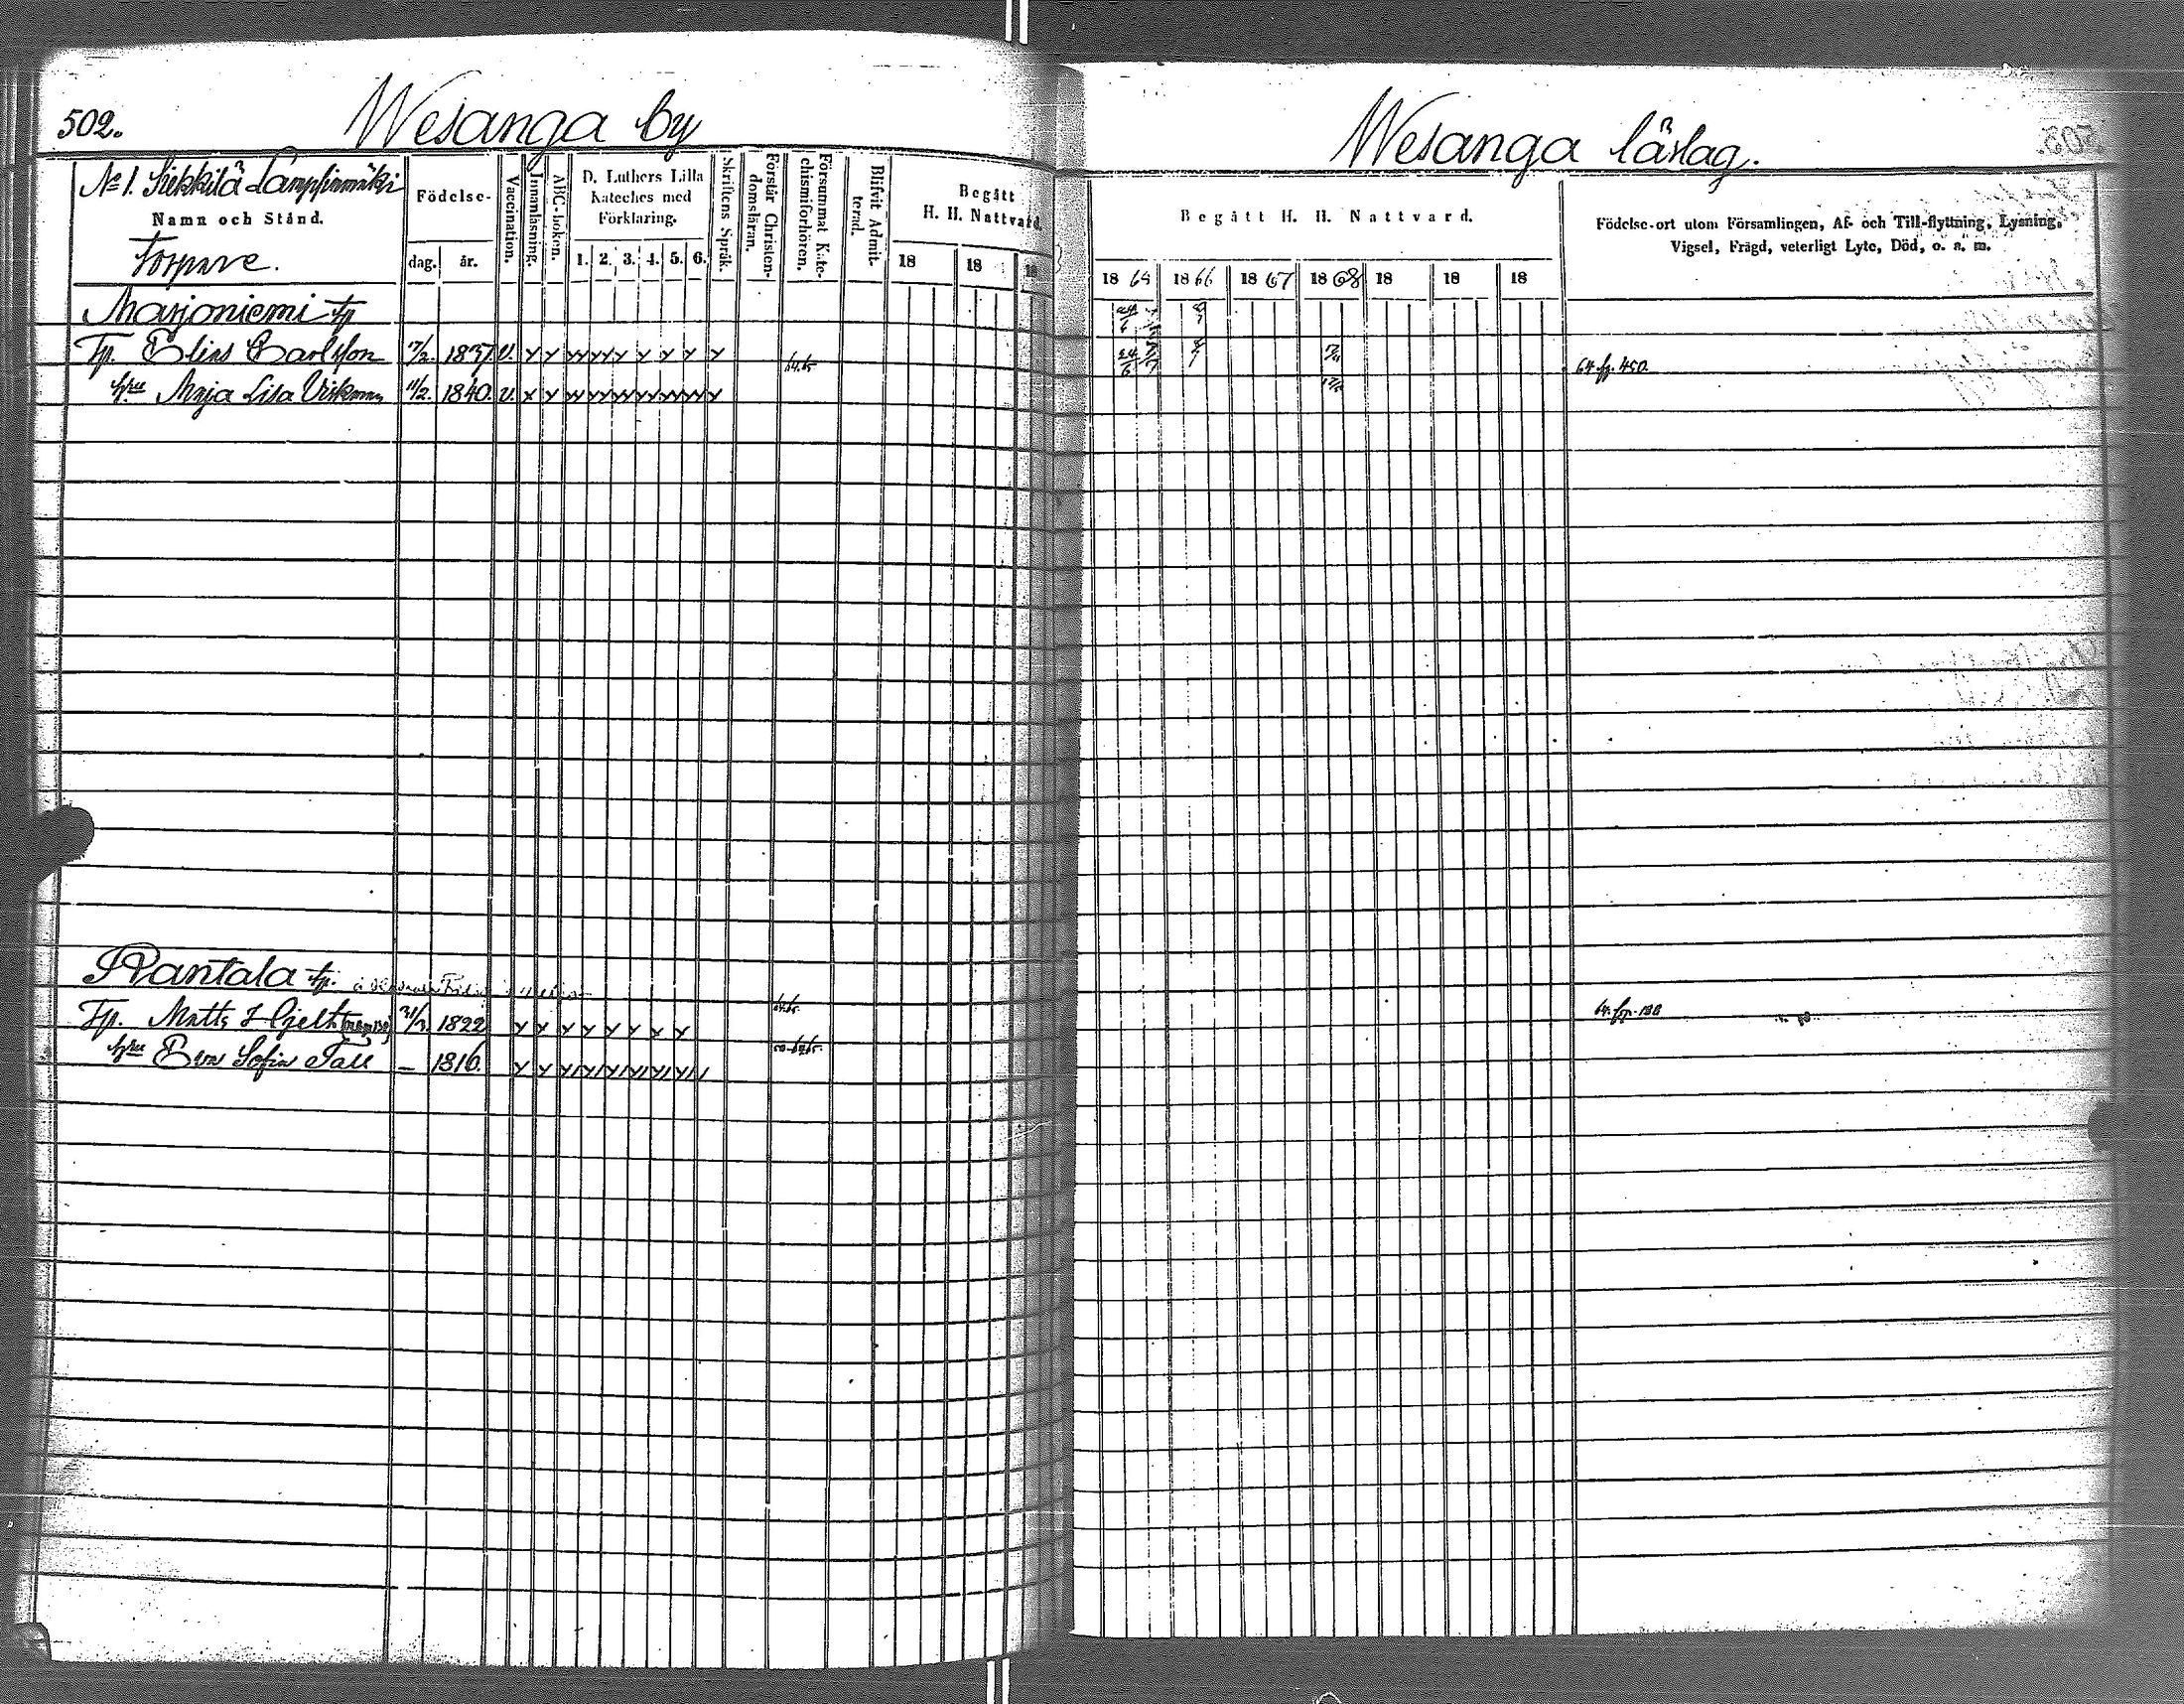 502.
Wesanga by
No 1. Siekkilä Lampinmäki
Namn och Stånd.
Torpare.
Födelse-
dag. år.
Vaccination.
Innanläsning.
ABC-boken.
D. Luthers Lilla
Kateches med
Förklaring.
1. 2. 3. 4. 5. 6.
Skriftens Språk.
Förstår Christen-
domsläran.
Försummat Kate-
chismiförhören.
Blifvit Admit-
terad.
Begått
H. H. Nattvard.
18 18 18
Marjoniemi tp
Tp. Elias Carlsson 1837 v.
hru Maja Lisa Vikman 11/2. 1840. v.
64.65
Rantala tp.
Tp. Matts Hjelt 31/3. 1822
64.65.
hru Eva Sofia Tall – 1816.
Wesanga läslag.
503.
Begått H. H. Nattvard.
18 64 18 66 18 67 18 68 18 18 18
Födelse-ort utom Församlingen, Af- och Till-flyttning, Lysning,
Vigsel, Frägd, veterligt Lyte, Död, o. s. m.
24/6
64. fp. 450.